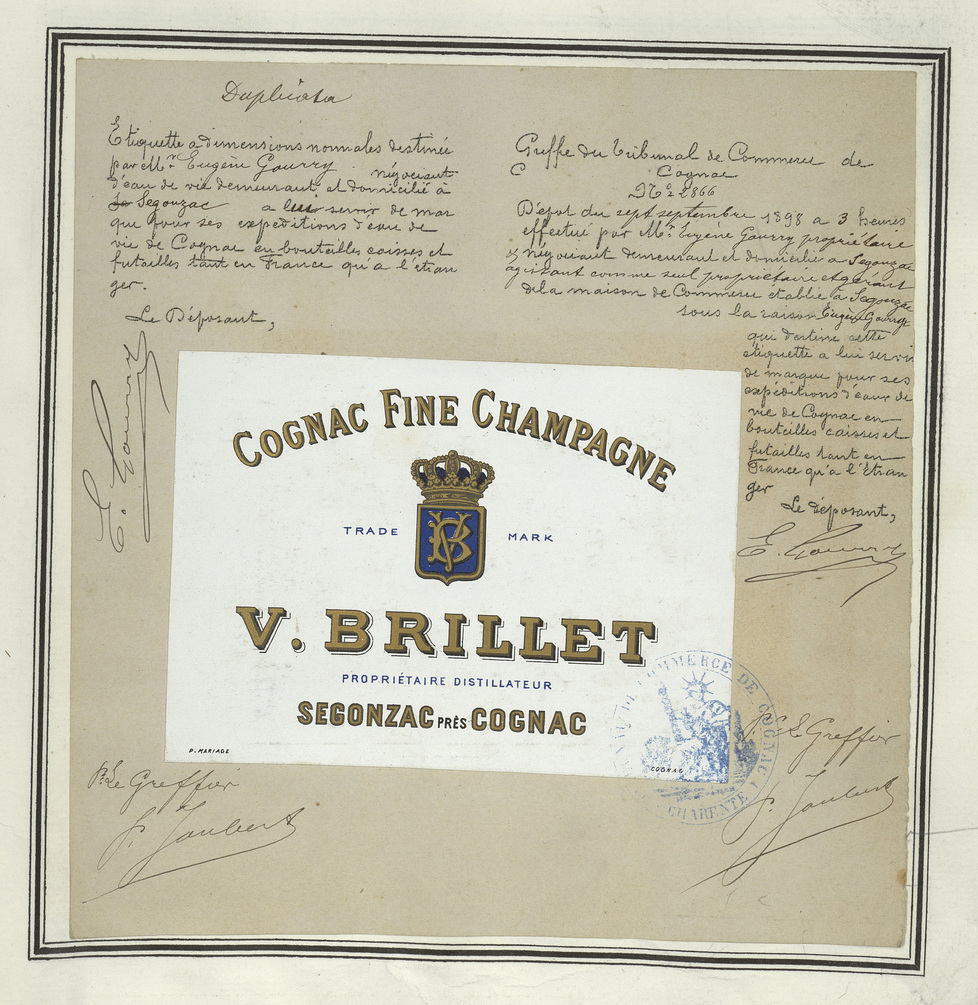 Duplicata
Etiquette a dimensions normales destinée
par Mr. Eugène Gourry négociant
d'eau de vie demeurant et domicilié à
Segonzac a lui servir de mar
que pour ses expéditions d'eau de
vie de Cognac en bouteilles caisses et
futailles tant en France qu'a l'étran
ger.
Le Déposant,
E. Gourry
Greffe du Tribunal de Commerce de
Cognac
No. 2866
Dépot du sept septembre 1898 a 3 heures
effectué par Mr. Eugène Gourry propriétaire
et négociant demeurant et domicilié a Segonzac
agissant comme seul propriétaire et gérant
de la maison de Commerce etablie à Segonzac
sous la raison Eugène Gourry
qui destine cette
etiquette a lui servir
de marque pour ses
expéditions d'eaux de
vie de Cognac en
bouteilles caisses et
futailles tant en
France qu'a l'étran
ger
Le déposant,
E. Gourry
COGNAC FINE CHAMPAGNE
TRADE MARK
V. BRILLET
PROPRIÉTAIRE DISTILLATEUR
SEGONZAC PRÈS COGNAC
P. MARIAGE
COGNAC
COMMERCE DE COGNAC
CHARENTE
Pr Le Greffier
P. Joubert
Pr Le Greffier
P. Joubert